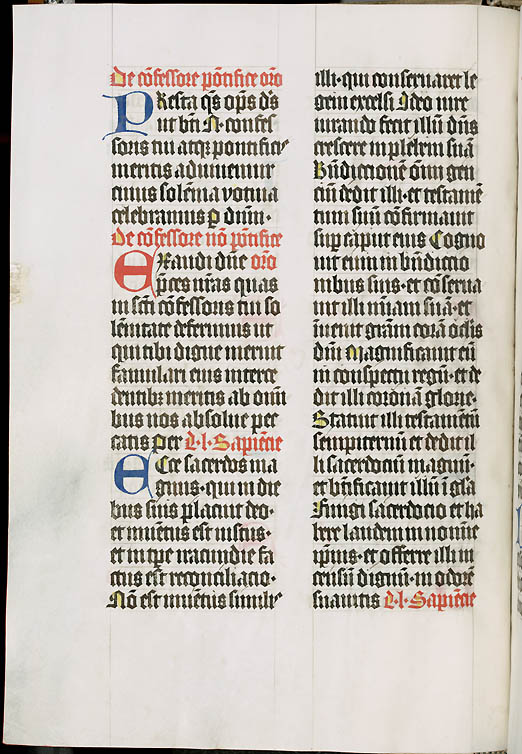 De cōfessore pōtifice oro
PResta qs ops ds
ut bti N. confes
soris tui atqz pontificis
meritis adiuuemur
cuius solēnia votiua
celebramus p dnm.
De cōfessore nō pōtifice
EXaudi dne oro
pces nras quas
in scti cōfessoris tui so
lēnitate deferimus ut
qui tibi digne meruit
famulari eius interce
dentibz meritis ab omi
bus nos absolue pec
catis per L. l. Sapiētie
ECce sacerdos ma
gnus. qui in die
bus suis placuit deo.
et inuētus est iustus.
et in tpe iracundie fa
ctus est reconciliacio.
Nō est inuētus similis
illi. qui conseruaret le
gem excelsi Ideo iure
iurando fecit illū dns
crescere in plebem suā
Bndiccionē oīm gen
ciū dedit illi. et testamē
tum suū cōfirmauit
sup caput eius Cogno
uit eum in bndiccio
nibus suis. et cōserua
uit illi miam suā. et
inuenit gram corā oclis
dni Magnificauit eū
in conspectu regū. et de
dit illi coronā glorie.
Statuit illi testamētū
sempiternū et dedit il
li sacerdociū magnū.
et btificauit illū i gla
Fungi sacerdocio et ha
bere laudem in nomine
ipius. et offerre illi in
censū dignū. in odorē
suauitis L. l. Sapiētie